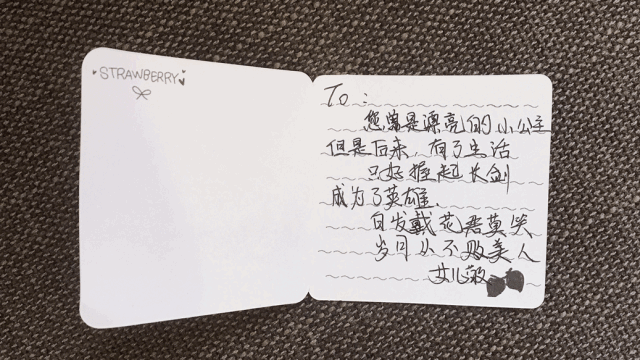 STRAWBERRY
To:
您曾是漂亮的小公主
但是后来,有了生活
只好握起长剑
成为了英雄.
白发戴花君莫笑
岁月从不败美人
女儿